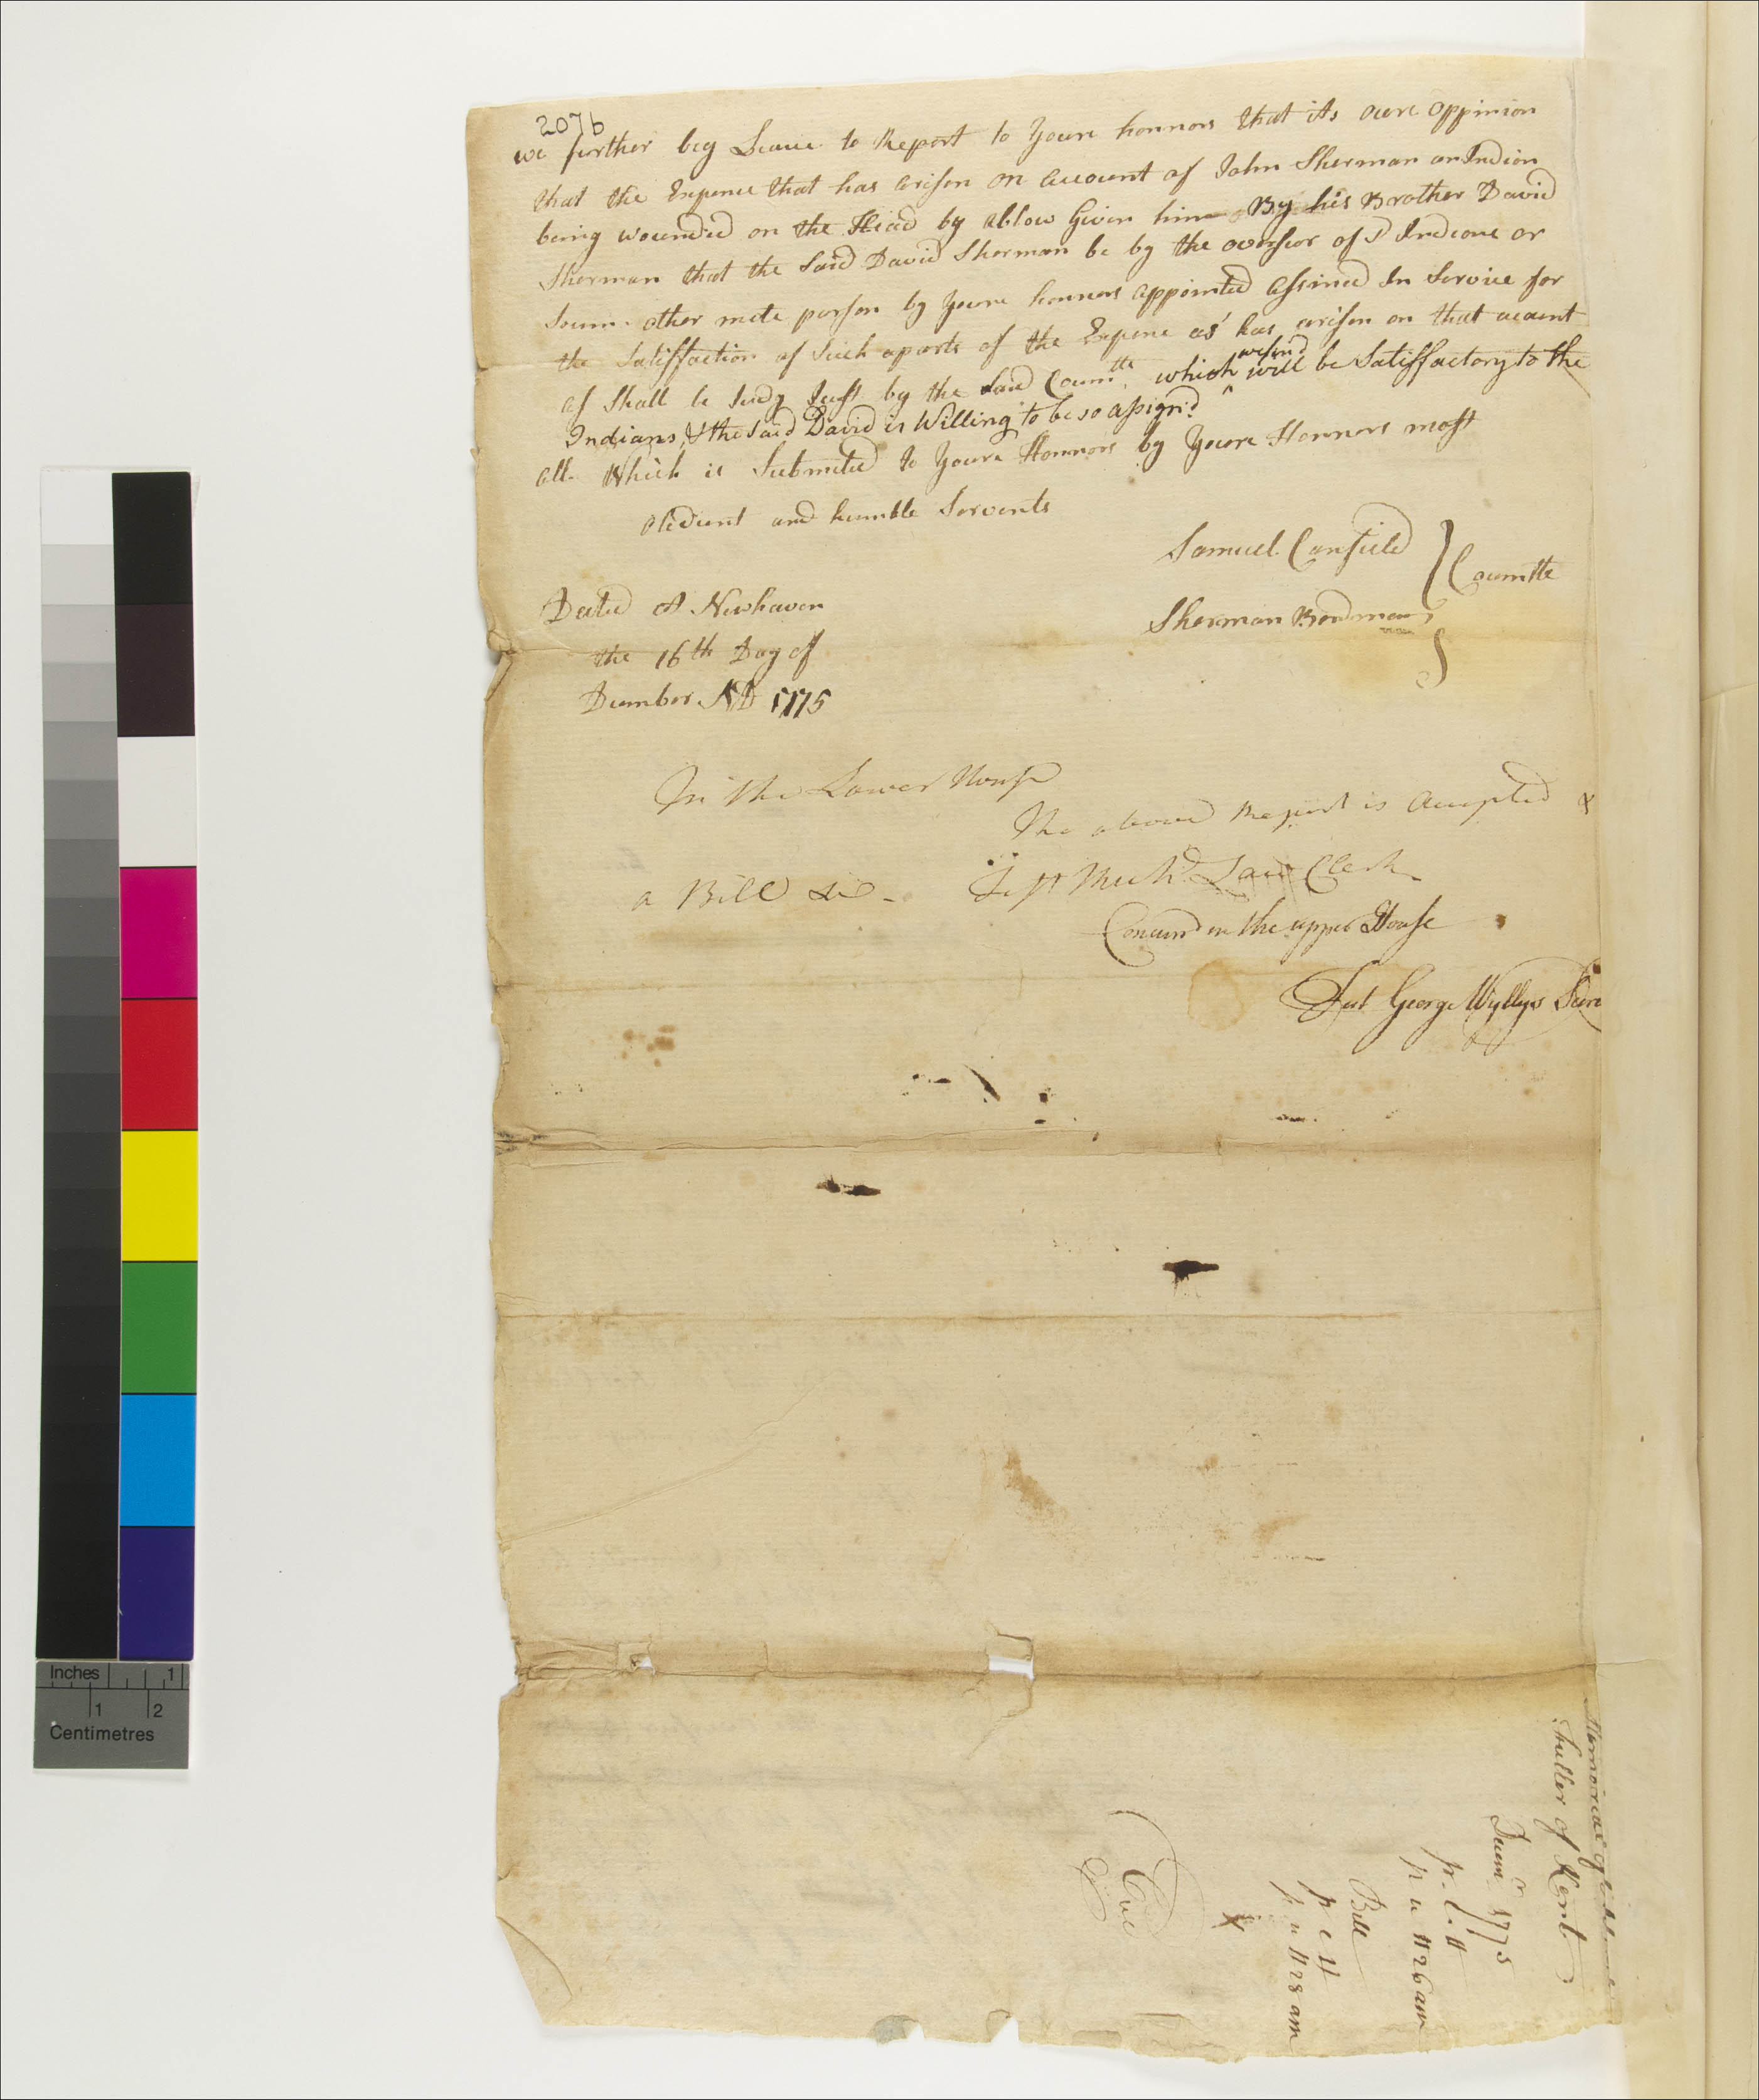 207b
we further beg Leave to Report to Youre honnors that its oure oppinion
that the Expence that has arisen on account of John Sherman an Indion
being wounded on the Head by ablow Given him By his Brother David
Sherman that the Said David Sherman be by the overseor of sd Indions or
Soum other mete person by youre honnors appointed assined In Service for
the Satisffaction of Such aparte of the Expence as has arisen on that acount
as Shall be Judg Just by the Said Coumtte, which we find will be Satisffactory to the
Indians, & the Said David is Willing to be so assignd
all Which is Submited to Youre Honnors by Youre Honnors most
obedient and humble Servents
Samuel Canfield
Coumtte
Sherman Bordman
Dated at Newhaven
the 16th Day of
Decmber AD 1775
In the Lower House
The above Report is Accepted &
a Bill &c
Test Richd Law Clerk
Concurrd in the upper House
Test George Wyllys Secre
Memorial of
Fuller of Kent
Decemr 1775
p. l. H
p u H 26 am
Bill
p l H
p u H 28 am